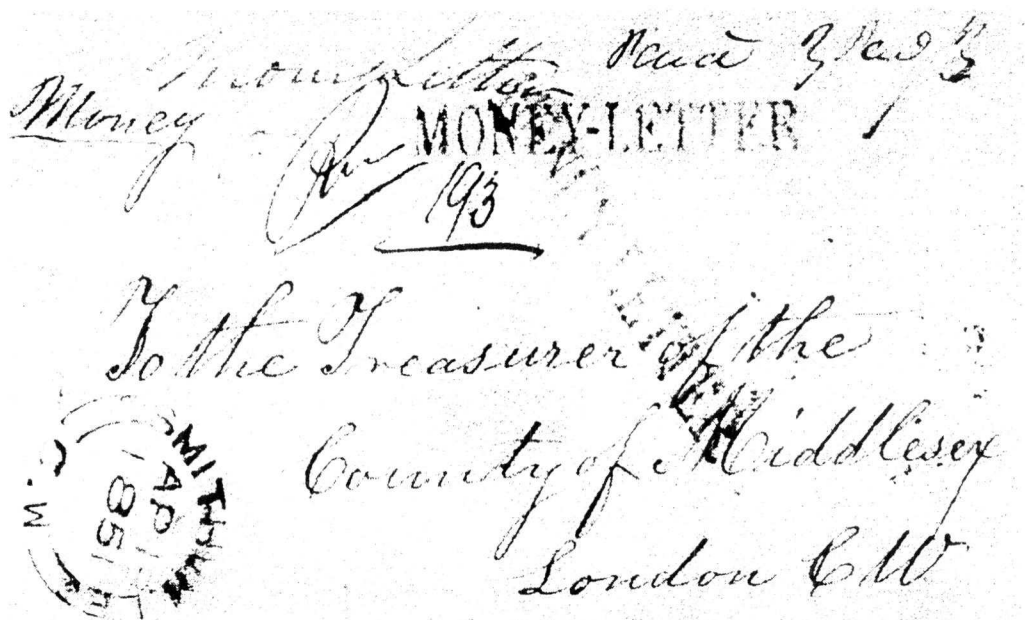 Money Letter Paid
Money
MONEY-LETTER
193
To the Treasurer of the
County of Middlesex
London C W
AP
1851
C. W.